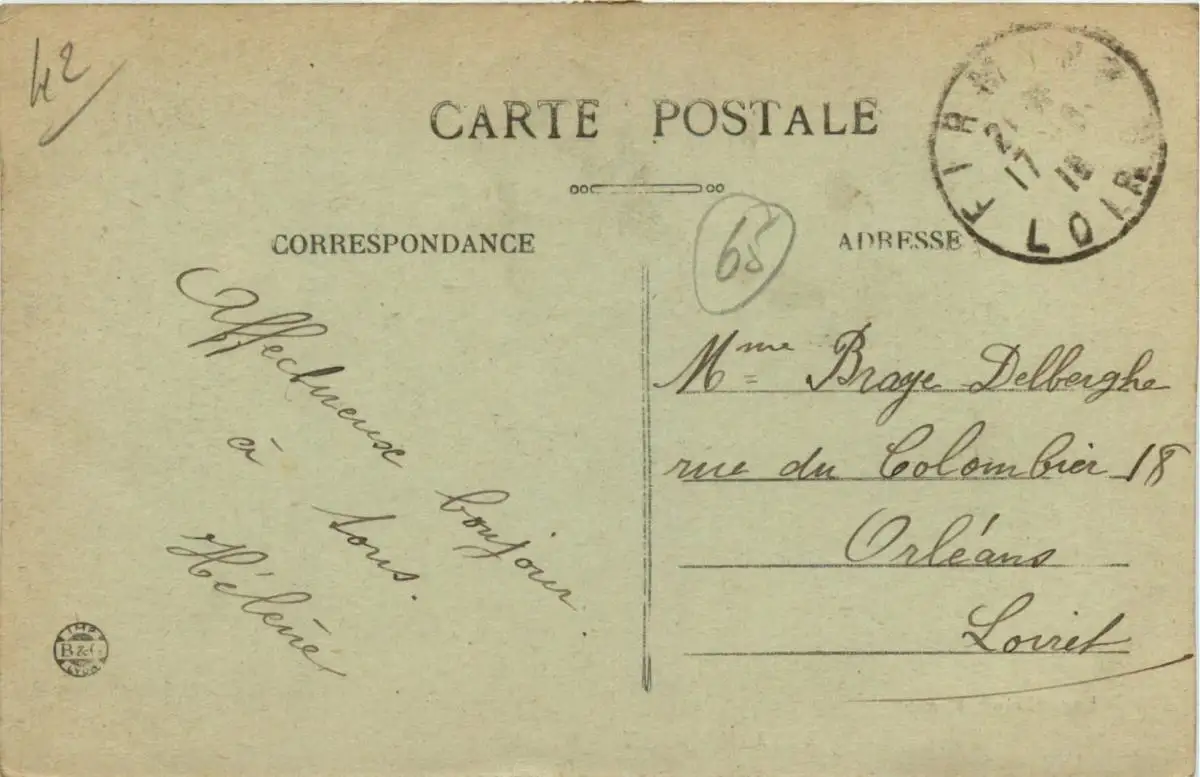 42
CARTE POSTALE
FIRMINY
21
17 18
LOIRE
65
CORRESPONDANCE
ADRESSE
Affectueux bonjour
à tous.
Hélène
Mme Braye Delberghe
rue du Colombier 18
Orléans
Loiret
IMP
B & G
LYON